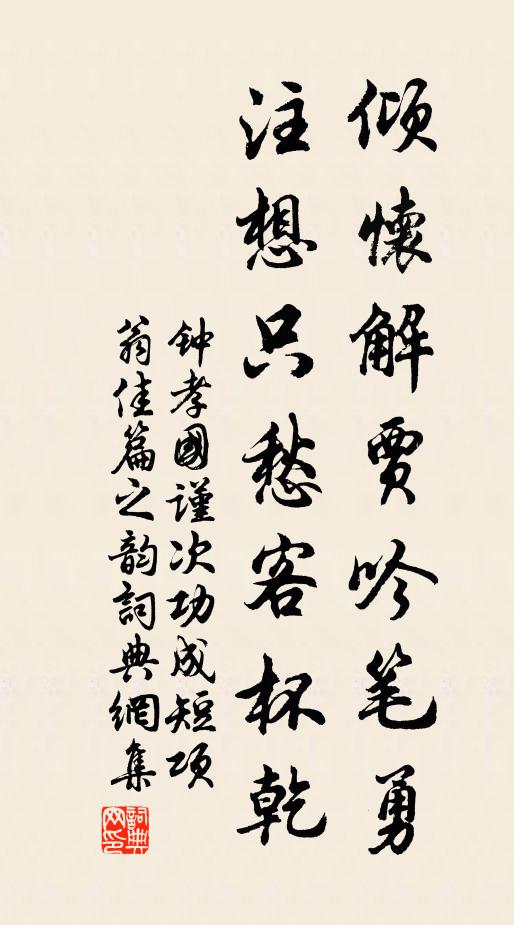 倾懷解賈吟笔勇
注想只愁客杯乾
钟孝國谨次功成短项
翁佳篇之韵詞典網集
詞典网印